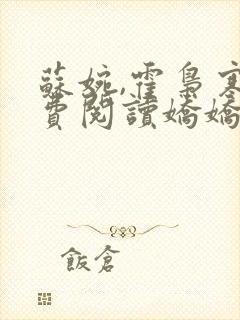 蘇婉,霍梟寒
費閱讀嬌嬌
飯倉